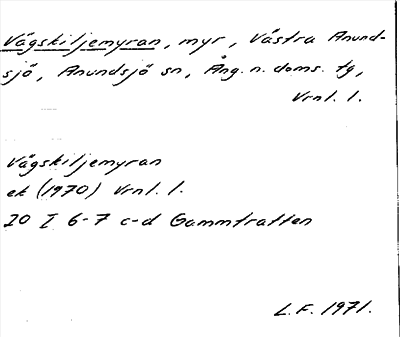 Vägskiljemyran, myr, Västra Anund-
sjö, Anundsjö sn, Ång. n. doms. tg,
Vrnl. l.
Vägskiljemyran
ek (1970) Vrnl. l.
20 I 6-7 c-d Gammtratten
L.F. 1971.